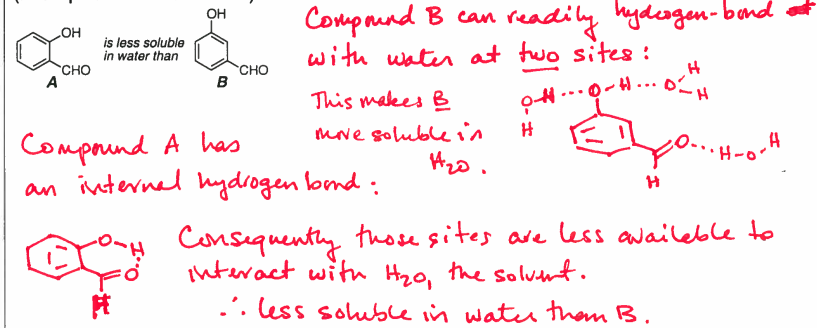 OH
CHO
A
is less soluble
in water than
OH
CHO
B
Compound B can readily hydrogen-bond
with water at two sites :
This makes B
more soluble in
H2O .
O-H ... O-H ... O-H
H
H
O ... H-O-H
H
Compound A has
an internal hydrogen bond :
O-H
O
H
Consequently those sites are less available to
interact with H2O, the solvent.
∴ less soluble in water than B .